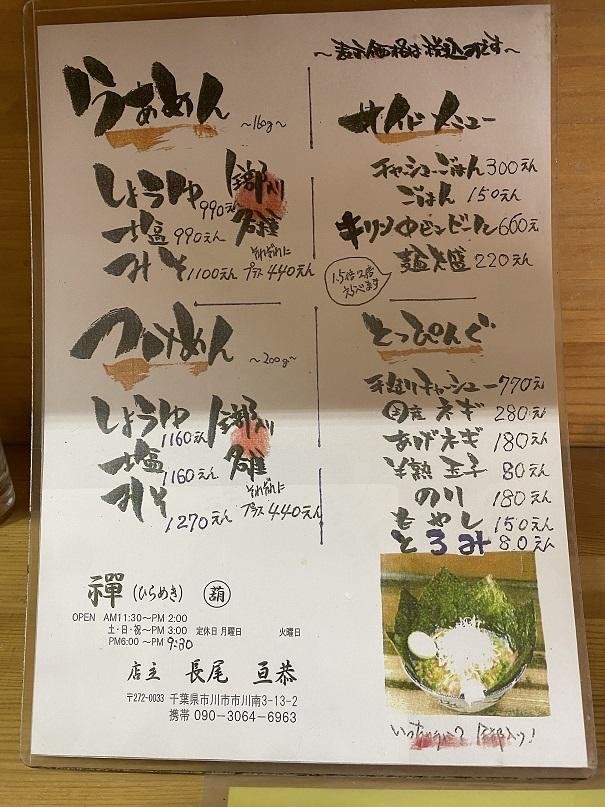 ～表示価格は税込みです～
らぁめん ～160g～
しょうゆ 990えん
塩 990えん
みそ 1100えん
全部入り
それぞれに
プラス440えん
サイドメニュー
チャーシューごはん 300えん
ごはん 150えん
キリン中ビンビール 660え
麺大盛 220えん
1.5倍 2倍
えらべます
つけめん ～200g～
しょうゆ 1160えん
塩 1160えん
みそ 1270えん
全部入り
それぞれに
プラス440えん
とっぴんぐ
手造りチャーシュー 770え
国産ネギ 280えん
あげネギ 180えん
半熟玉子 80えん
のり 180えん
もやし 150えん
とろみ 80えん
禪 (ひらめき) 葫
OPEN AM11:30～PM 2:00
土・日・祝～PM 3:00 定休日 月曜日 火曜日
PM6:00 ～PM 9:30
店主 長尾 亘恭
〒272-0033 千葉県市川市市川南3-13-2
携帯 090-3064-6963
いっちゃう？ 全部入り！